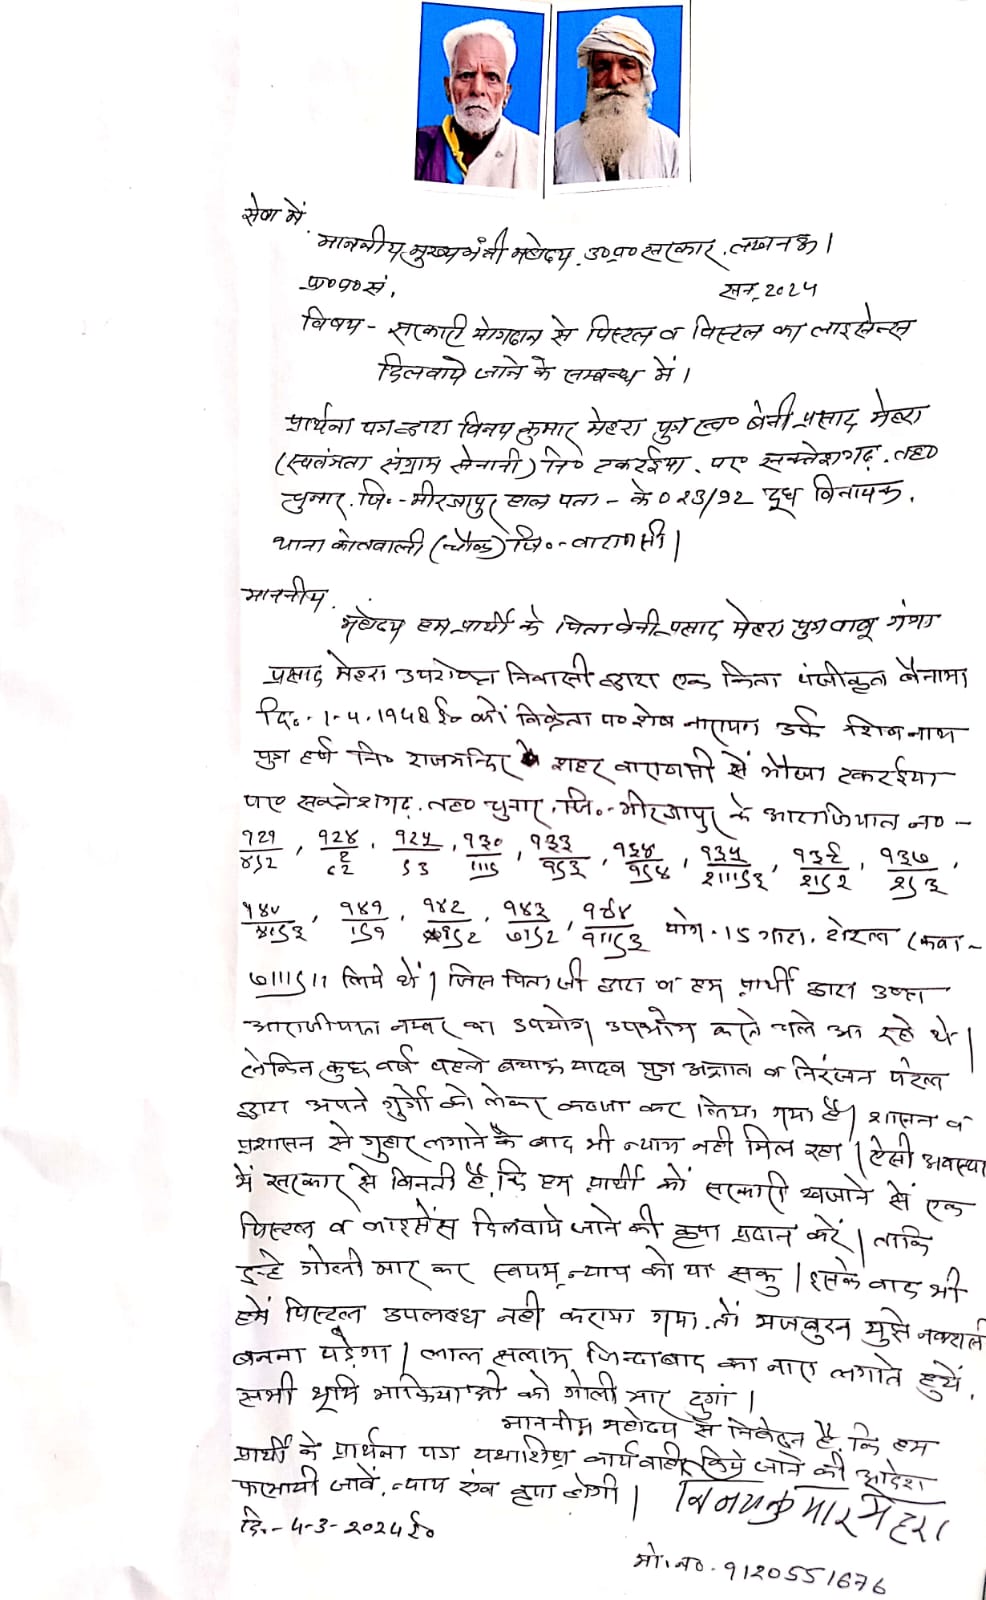 सेवा में,
माननीय मुख्यमंत्री महोदय, उ०प्र० सरकार, लखनऊ।
प्रा०प०सं, सन् २०२५
विषय - सरकारी योगदान से पिस्टल व पिस्टल का लाइसेन्स
दिलवाये जाने के सम्बन्ध में।
प्रार्थना पत्र द्वारा विनय कुमार मेहरा पुत्र स्व० बेनी प्रसाद मेहरा
(स्वतंत्रता संग्राम सेनानी) नि० टकरईया, पर० सक्तेशगढ़, तह०
चुनार, जि०-मीरजापुर हाल पता - के० २३/९२ दूध विनायक,
थाना कोतवाली (चौक) जि०-वाराणसी।
माननीय,
महोदय हम प्रार्थी के पिता बेनी प्रसाद मेहरा पुत्र बाबू गंगा
प्रसाद मेहरा उपरोक्त निवासी द्वारा एक किता पंजीकृत बैनामा
दि०-1-५-१९५8 ई० को विक्रेता प० शेष नारायण उर्फ शिवनाथ
पुत्र हर्ष नि० राजमन्दिर शहर वाराणसी से मौजा टकरईया
पर० सक्तेशगढ़, तह० चुनार, जि०-मीरजापुर के आराजियात न० -
१२१, १२४, १२५, १३०, १३३, १३४, १३५, १३६, १३७,
१४०, १४१, १४२, १४३, योग-15 गाटा, टोटल रकबा-
लिये थे। जिस पिता जी द्वारा व हम प्रार्थी द्वारा उक्त
आराजीयात नम्बर का उपयोग उपभोग करते चले आ रहे थे।
लेकिन कुछ वर्ष पहले बचाऊ यादव पुत्र अज्ञात व निरंजन पटेल
द्वारा अपने गुर्गों को लेकर कब्जा कर लिया गया है। शासन व
प्रशासन से गुहार लगाने के बाद भी न्याय नही मिल रहा। ऐसी अवस्था
में सरकार से विनती है, कि हम प्रार्थी को सरकारी खजाने से एक
पिस्टल व लाइसेंस दिलवाये जाने की कृपा प्रदान करें। ताकि
इन्हे गोली मार कर स्वयम् न्याय को पा सकु। इसके बाद भी
हमें पिस्टल उपलब्ध नही कराया गया, तों मजबुरन मुझे नक्शली
बनना पड़ेगा। लाल सलाम, जिन्दाबाद का नारा लगाते हुयें,
सभी भूमि माफियाओं को गोली मार दुगां।
माननीय महोदय से निवेदन है, कि हम
प्रार्थी के प्रार्थना पत्र यथाशिघ्र कार्यवाही किये जाने की आदेश
फरमायी जावें, न्याय एंव कृपा होगी। विनय कुमार मेहरा
दि०-५-३-२०२५ ई०
मो० न० - ९1२०551६७६